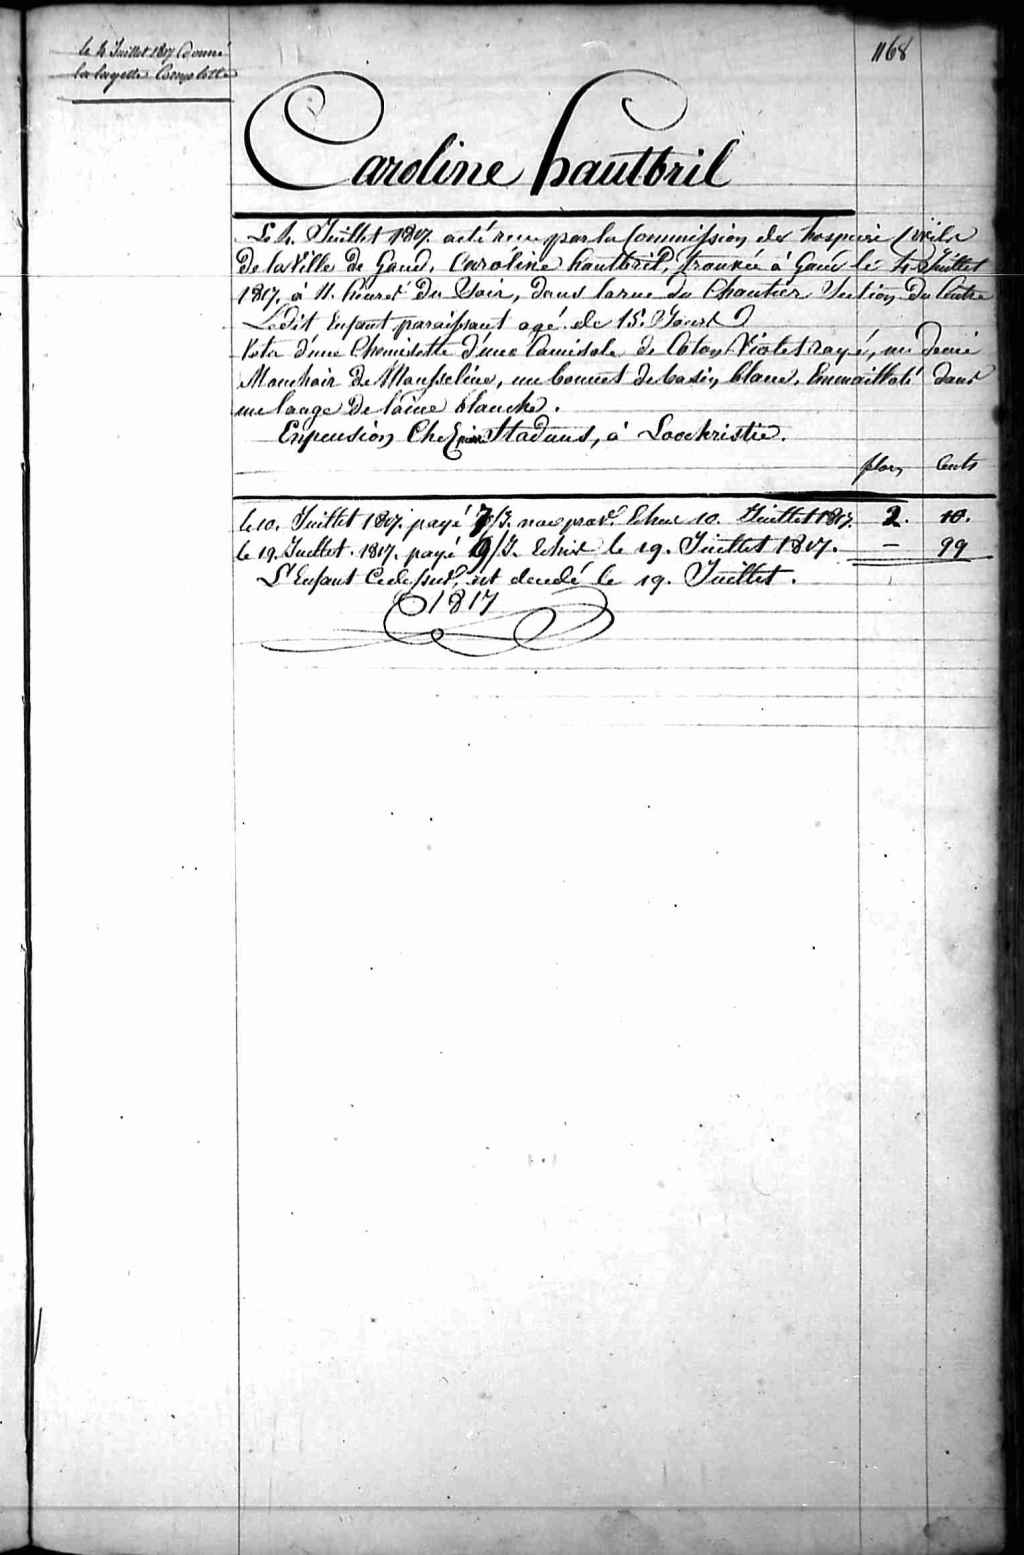 le 4 Juillet 1817 donné
la layette Complette
1168
Caroline hautbril
Le 4. Juillet 1817. a été reçu par la Commission des hospices Civils
De la Ville de Gand, Caroline hautbril, trouvée à Gand le 4 Juillet
1817, à 11. heures Du Soir, Dans la rue du Chantier Section Du Centre
Ledit Enfant paraissant agé de 15. Jours
Vetu d'une Chemisette d'une Camisole de Coton Violet rayé, un demi
Mouchoir De Mousseline, un bonnet de basin blanc, Emmailloté dans
un lange De laine blanche.
En pension Chez Stadaus, à Loochristie.
flors Cents
le 10. Juillet 1817. payé 7/J. Echus 10. Juillet 1817. 2. 10.
le 19. Juillet. 1817. payé 9/J. Echus le 19. Juillet 1817. — 99
L'Enfant Cidessus est decedé le 19. Juillet.
1817